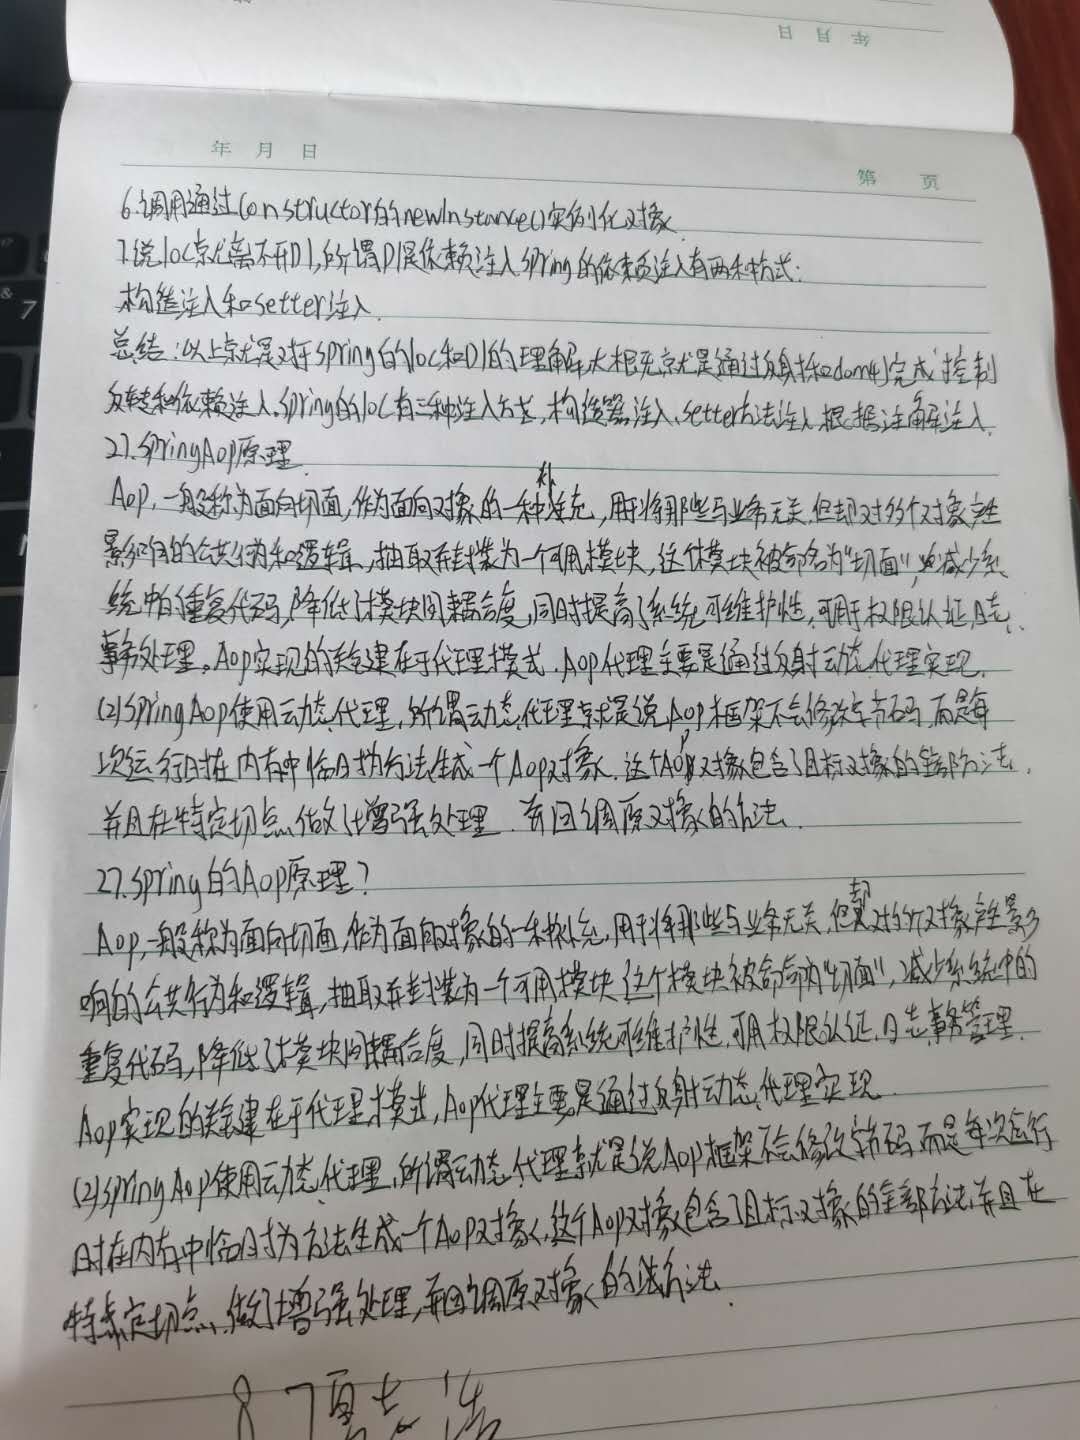 年 月 日
年 月 日
第 页
6.调用通过Constructor的newInstance()实例化对象
7.说Ioc就离不开DI,所谓DI是依赖注入.spring的依赖注入有两种方式:
构造注入和setter注入.
总结:以上就是对于spring的Ioc和DI的理解,大概就是通过反射和dom4j完成控制
反转和依赖注入.spring的Ioc有三种注入方式,构造器注入,setter方法注入,根据注解注入.
27.springAop原理
Aop,一般称为面向切面,作为面向对象的一种补充,用于将那些与业务无关,但却对多个对象产生
影响的公共行为和逻辑,抽取并封装为一个可用模块,这个模块被命名为"切面",减少系
统中的重复代码,降低了模块间耦合度,同时提高了系统可维护性,可用于权限认证,日志、
事务处理。Aop实现的关键在于代理模式.Aop代理主要是通过反射动态代理实现.
(2)springAop使用动态代理,所谓动态代理就是说Aop框架不会修改字节码 而是每
次运行时在内存中临时为方法生成一个Aop对象.这个Aop对象包含了目标对象的全部方法,
并且在特定切点做了增强处理.并回调原对象的方法.
27.spring的Aop原理?
Aop,一般称为面向切面,作为面向对象的一种补充,用于将那些与业务无关,但却对多个对象产生影
响的公共行为和逻辑,抽取并封装为一个可用模块 这个模块被命名为"切面",减少系统中的
重复代码,降低了模块间耦合度,同时提高系统可维护性,可用权限认证,日志,事务管理.
Aop实现的关键在于代理模式,Aop代理主要是通过反射动态代理实现.
(2)springAop使用动态代理,所谓动态代理就是说Aop框架不会修改字节码 而是每次运行
时在内存中临时为方法生成一个Aop对象,这个Aop对象包含了目标对象的全部方法,并且在
特定切点,做了增强处理,并回调原对象的方法.